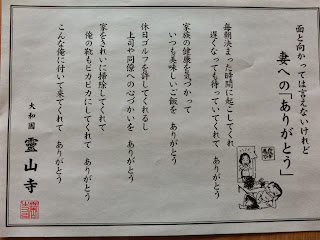 面と向かっては言えないけれど
妻への「ありがとう」
毎朝決まった時間に起こしてくれ
遅くなっても待っていてくれて ありがとう
家族の健康を気づかって
いつも美味しいご飯を ありがとう
休日ゴルフを許してくれるし
上司や同僚への心づかいを ありがとう
家をきれいに掃除してくれて
俺の靴もピカピカにしてくれて ありがとう
こんな俺に付いて来てくれて ありがとう
大和國 霊山寺